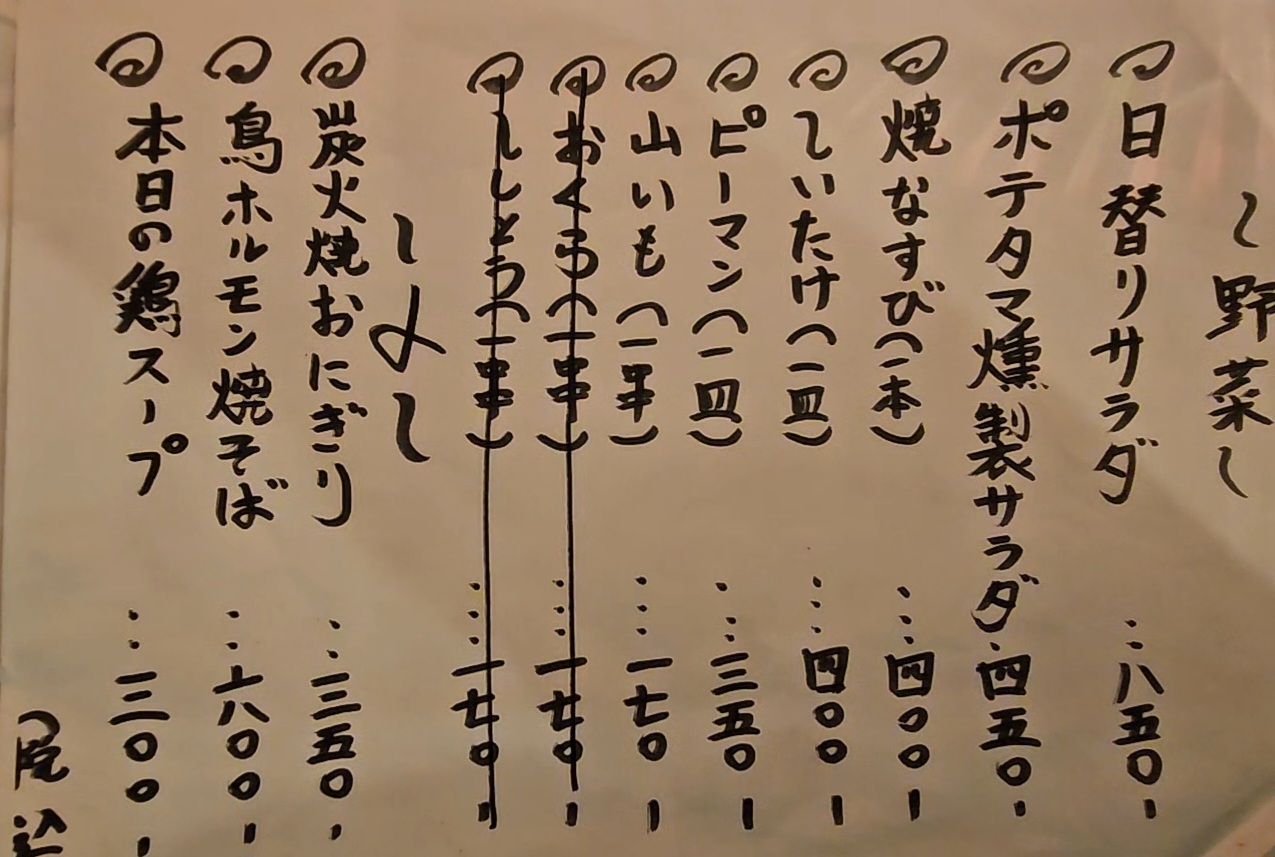 〜野菜〜
日替りサラダ …八五〇-
ポテタマ燻製サラダ…四五〇-
焼なすび(一本) …四〇〇-
しいたけ(一皿) …四〇〇-
ピーマン(一皿) …三五〇-
山いも(一串) …一七〇-
おくら(一串) …一七〇-
ししとう(一串) …一七〇-
〜〆〜
炭火焼おにぎり …三五〇-
鳥ホルモン焼そば …六〇〇-
本日の鶏スープ …三〇〇-
込